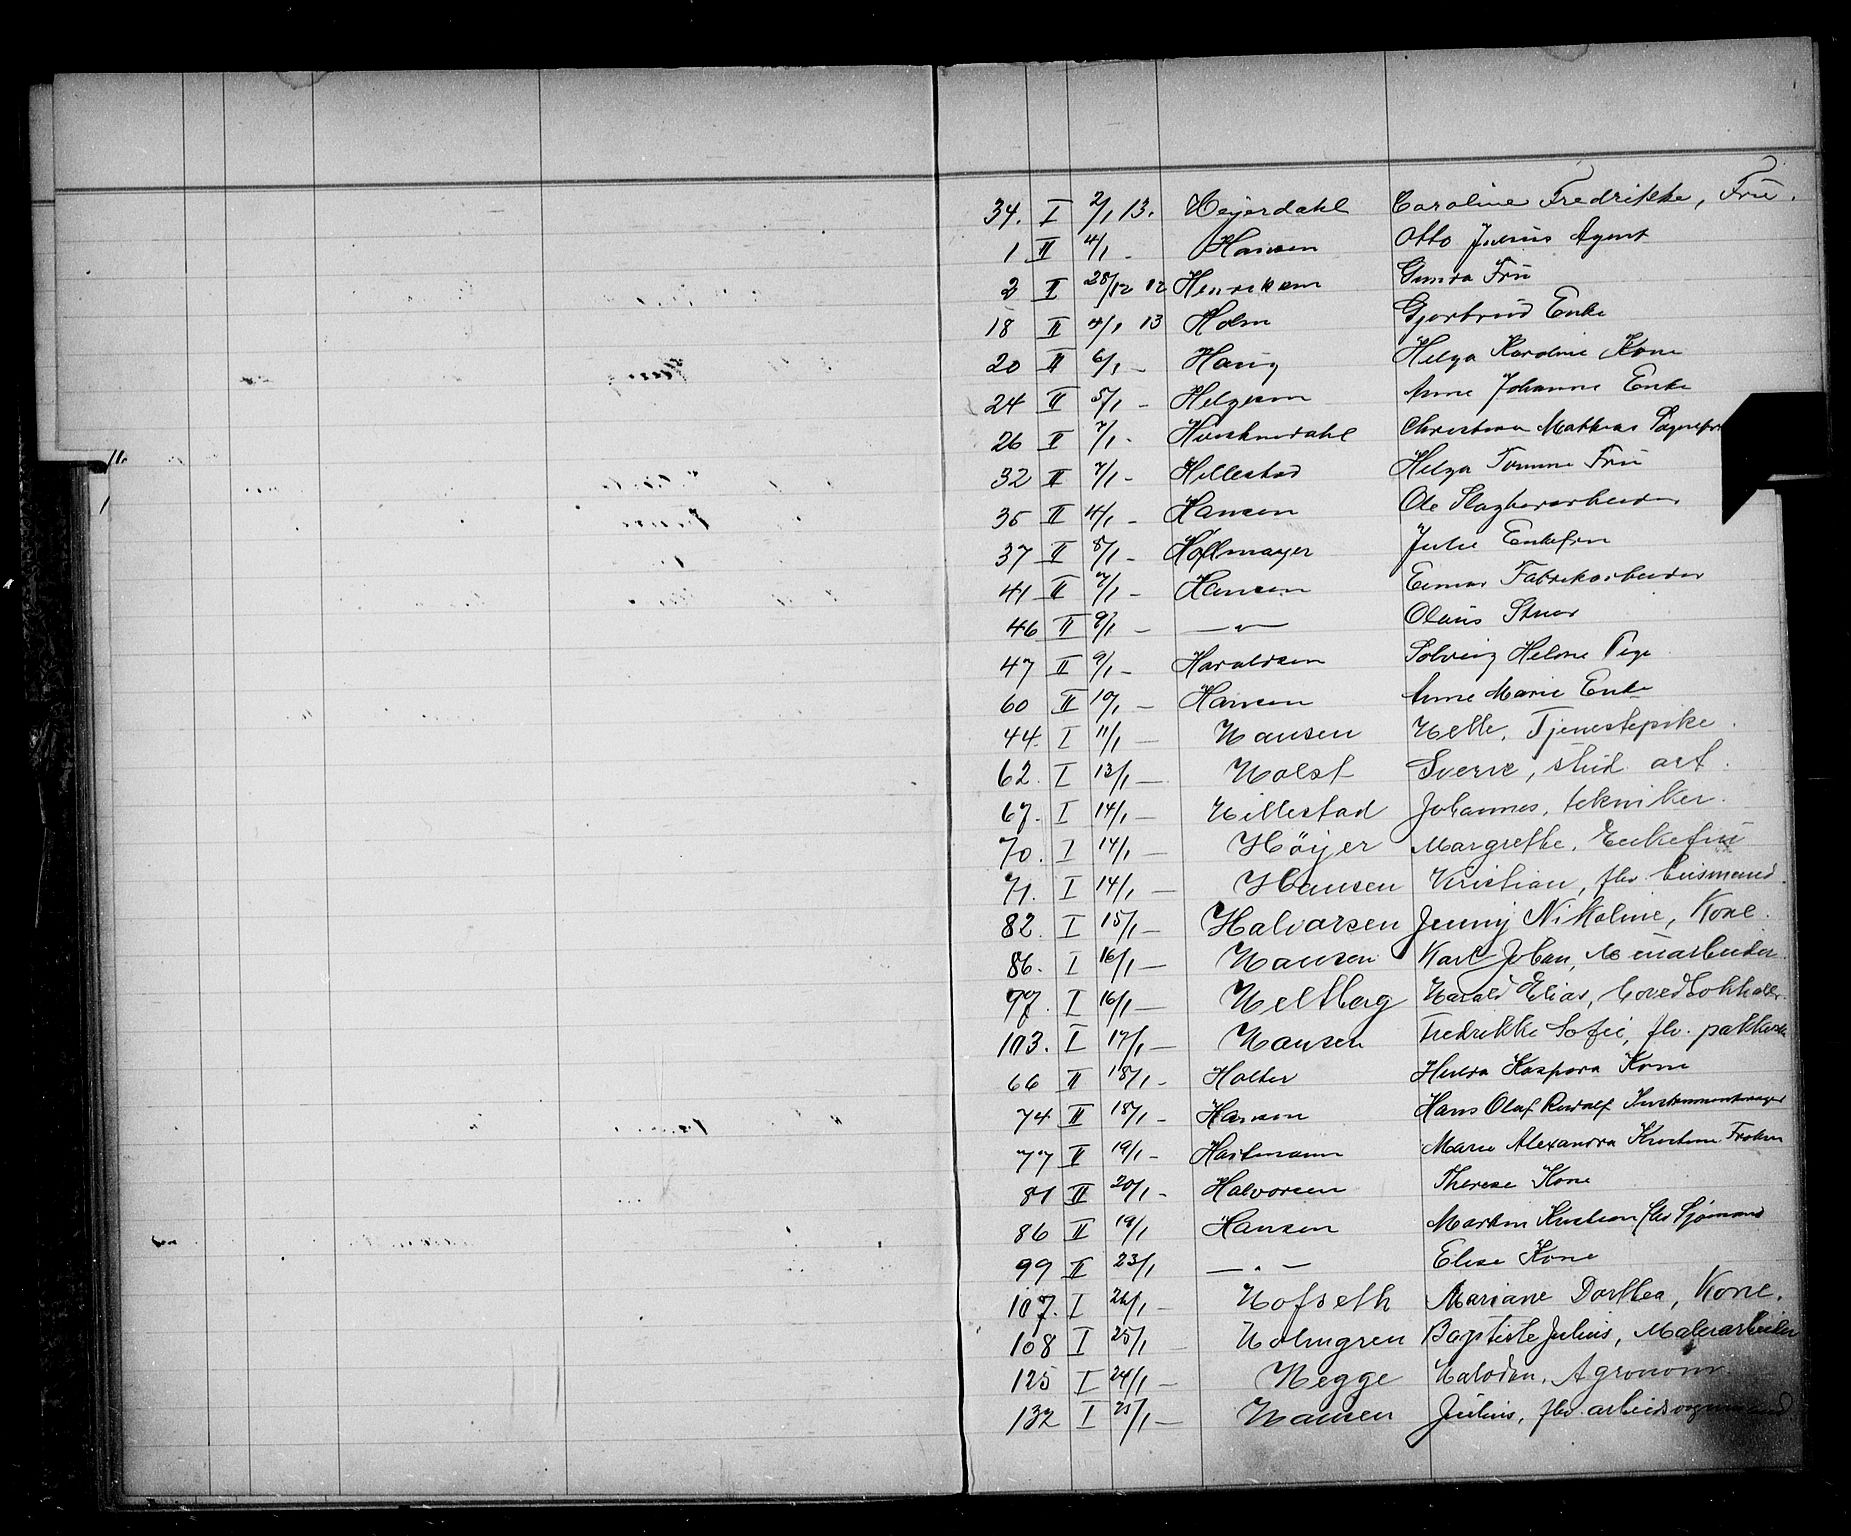 34. I 2/1 13. Heyerdahl Caroline Fredrikke, Frü.
1 II 4/1 - Hansen Otto Julius Agent
2 II 28/12 12 Henriksen Gunda Frü
18 II 4/1 13 Holm Gjertrud Enke
20 II 6/1 - Haüg Helga Karoline Kone
24 II 5/1 - Helgesen Anne Johanne Enke
26 II 7/1 - Christian Mathias
32 II 7/1 - Hillestad Helga Frü
35 II 4/1 - Hansen Ole Slagterarbeider
37 II 8/1 - Hoffmayer Julie Enkefru
41 II 7/1 - Hansen Einar Fabrikarbeider
46 II 9/1 - — " — Olaüs Stuer
47 II 9/1 - Haraldsen Solveig Helene Pige
60 II 10/1 - Hansen Anne Marie Enke
44. I 11/1 — Hansen Helle, Tjenestepike.
62. I 13/1 — Holst Sverre, stud. art.
67. I 14/1 — Hillestad Johannes, tekniker.
70. I 14/1 — Höyer Margrethe, Enkefrü
71. I 14/1 — Hansen Kristian, fhv.
82. I 15/1 — Halvorsen Jenny Nikoline, Kone.
86. I 16/1 — Hansen Karl Johan, Mürarbeider.
97. I 16/1 — Heltberg Harald Elias, hovedbokholder.
103. I 17/1 — Hansen Fredrikke Sofie, fhv. pakkerske
66 II 18/1 - Holter Hulda Kaspara Kone
74 II 18/1 - Hansen Hans Olaf Rudolf Instrumentmager
77 II 19/1 - Hartmann Marie Alexandra Kristine Frøken
81 II 20/1 - Halvorsen Therese Kone
86 II 19/1 Hansen Martin Kristian fhv Sjømand
99 II 23/1 — " — Elise Kone
107. I 26/1 — Hofseth Mariane Dorthea, Kone.
108 I 25/1 — Holmgren Baptiste Julius, Malerarbeider
125 I 24/1 — Hegge Halvdan, Agronom.
132 I 25/1 — Hansen Julius, fhv. arbeidsvognmand